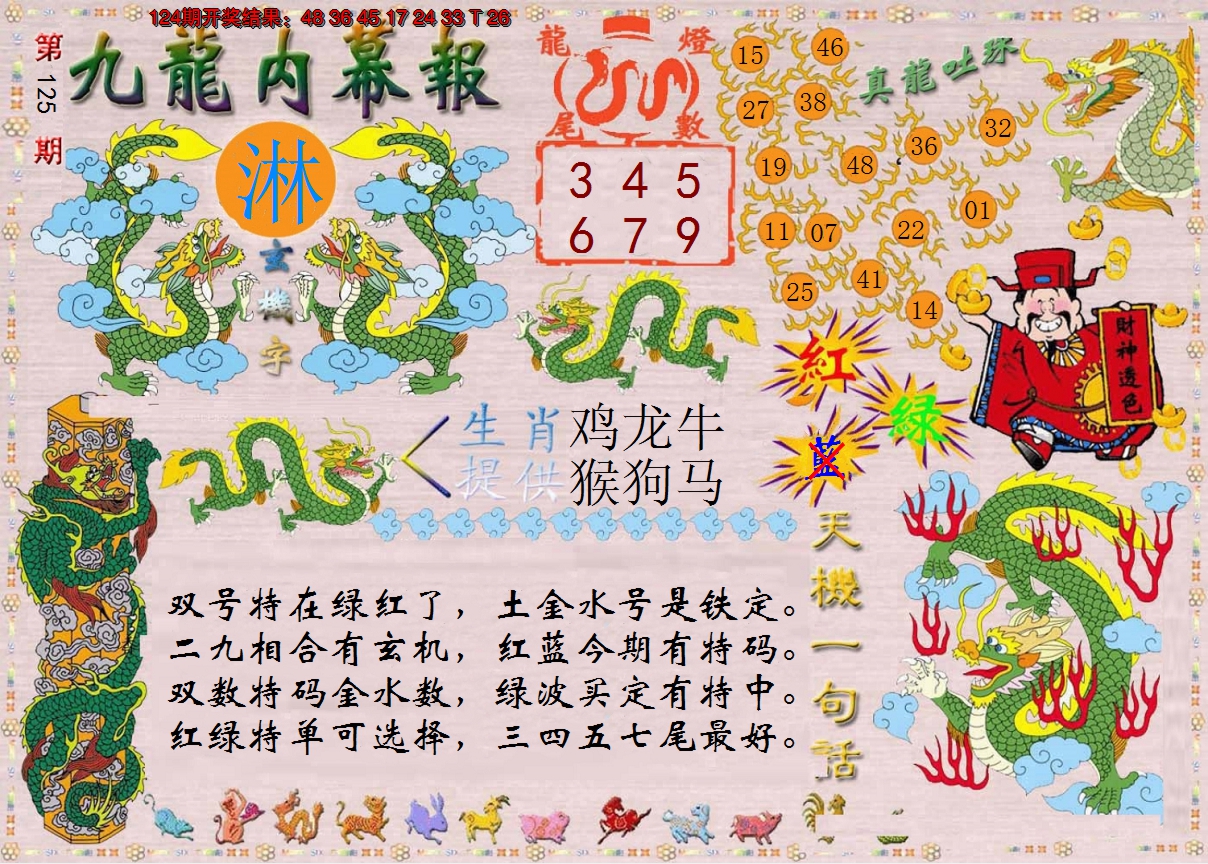 124期开奖结果：48 36 45 17 24 33 T 26
第125期
九龍内幕報
淋
玄機字
龍燈
尾數
3 4 5
6 7 9
真龍吐珠
15 46
27 38
19 48 36 32
11 07 22 01
25 41 14
財神透色
紅
綠
藍
生肖
提供
鸡龙牛
猴狗马
天機一句話
双号特在绿红了，土金水号是铁定。
二九相合有玄机，红蓝今期有特码。
双数特码金水数，绿波买定有特中。
红绿特单可选择，三四五七尾最好。